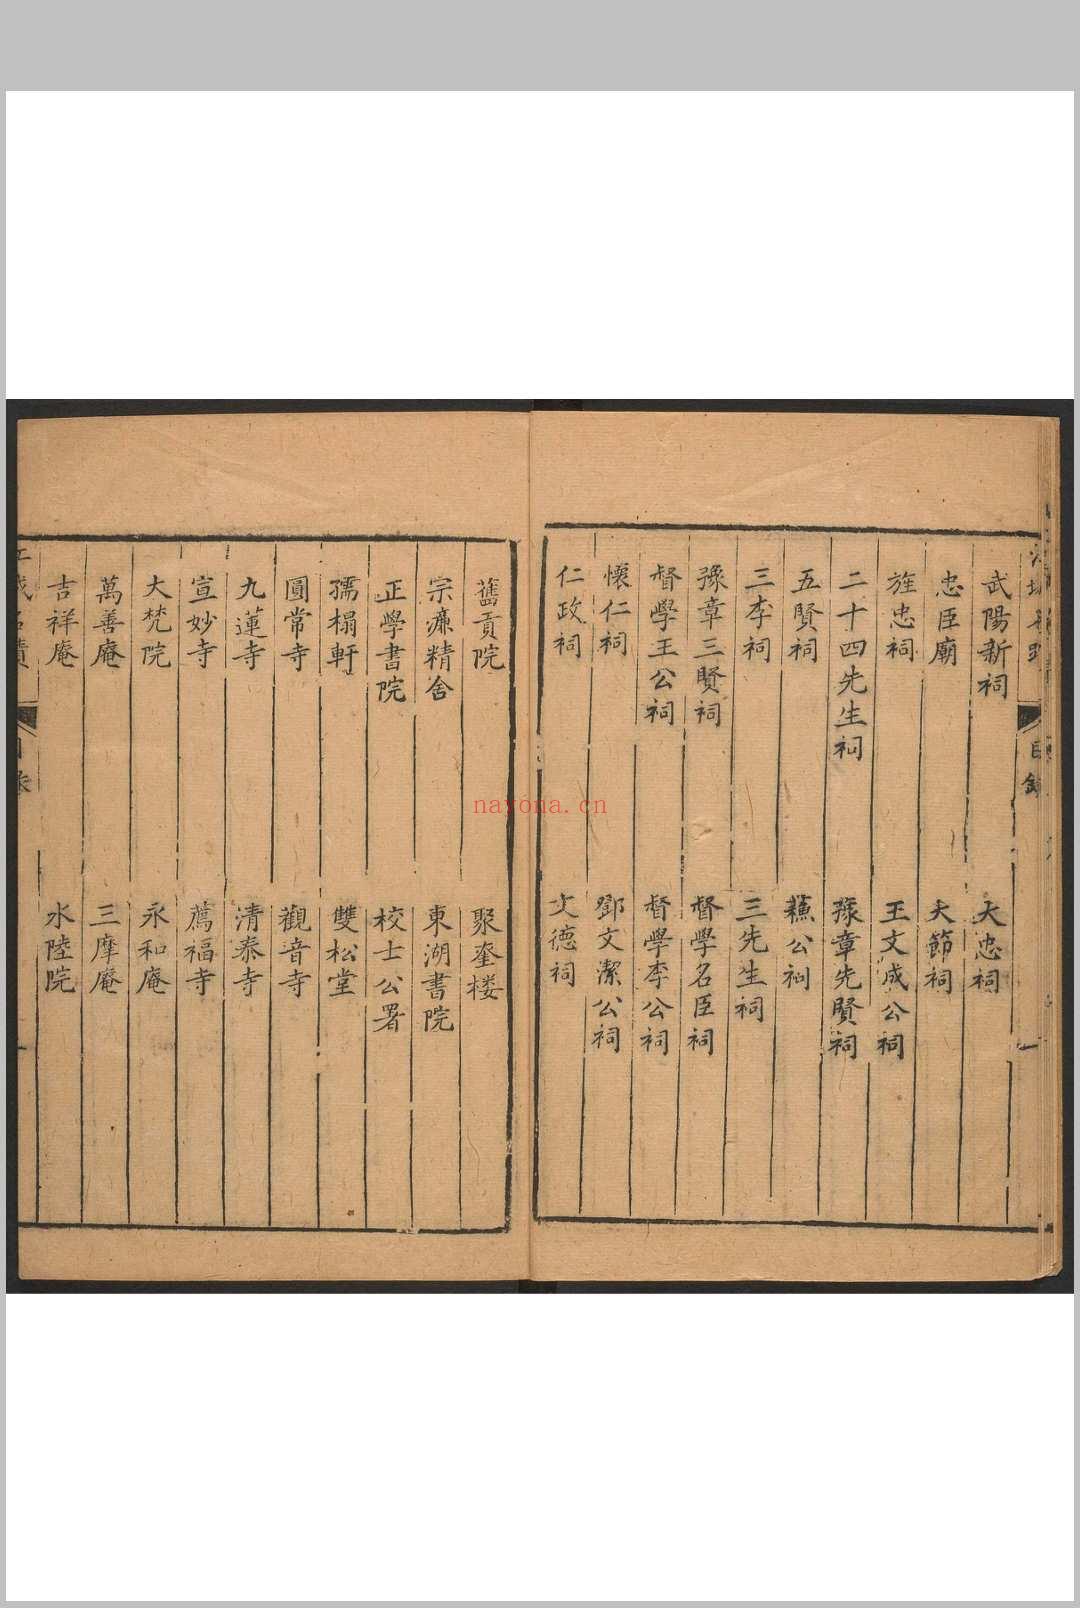 武陽新祠 大忠祠
忠臣廟 大節祠
旌忠祠 王文成公祠
二十四先生祠 豫章先賢祠
五賢祠 蘓公祠
三李祠 三先生祠
豫章三賢祠 督學名臣祠
督學王公祠 督學李公祠
懷仁祠 鄧文潔公祠
仁政祠 文德祠
舊貢院 聚奎楼
宗濂精舍 東湖書院
正學書院 校士公署
孺榻軒 雙松堂
圓常寺 觀音寺
九蓮寺 清泰寺
宣妙寺 薦福寺
大梵院 永和庵
萬善庵 三摩庵
吉祥庵 水陸院
目錄
nayona.cn